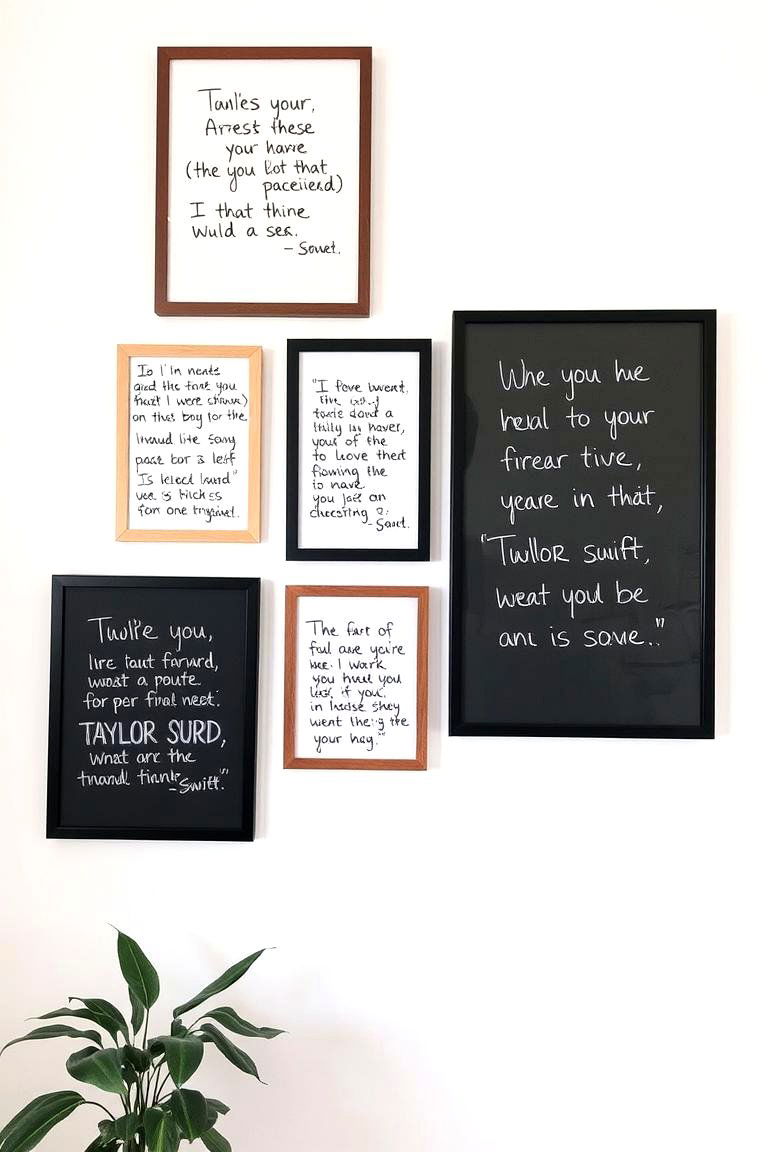 Tanl'es your,
Arrest these
your harre
(the you Lot that
paceiierd)
I that thine
wuld a ses.
- Sowet.
Io I'In nents
and the fant you
hazt I were
on that boy for the
linvud lite sony
pase bor is leif
Is lelecl lxurd"
vee is hickes
for one
"I fove bwent.
toxic dond a
llilly las haver,
your of the
to leove thert
flowing the
to nave.
you jast on
checoring a:
- Sonet.
Whe you hve
heral to your
firear tive,
yeare in that,
"Twllor suift,
weat youl be
anı is some.."
Twol'e you,
lire taut farward,
wwost a poute
for per final neet.
TAYLOR SURD,
What arc the
tnandl
- Swift."
The fart of
ful ane yoire
hee. I wark
you hued you
if you.
in hedse shey
went the
your hay."